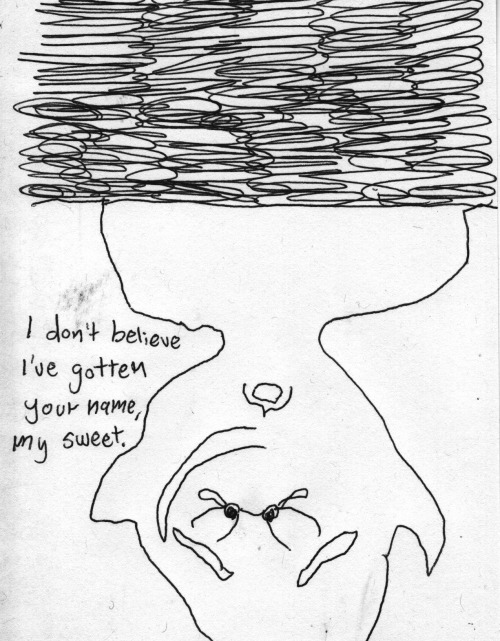 I don't believe
I've gotten
your name,
my sweet.